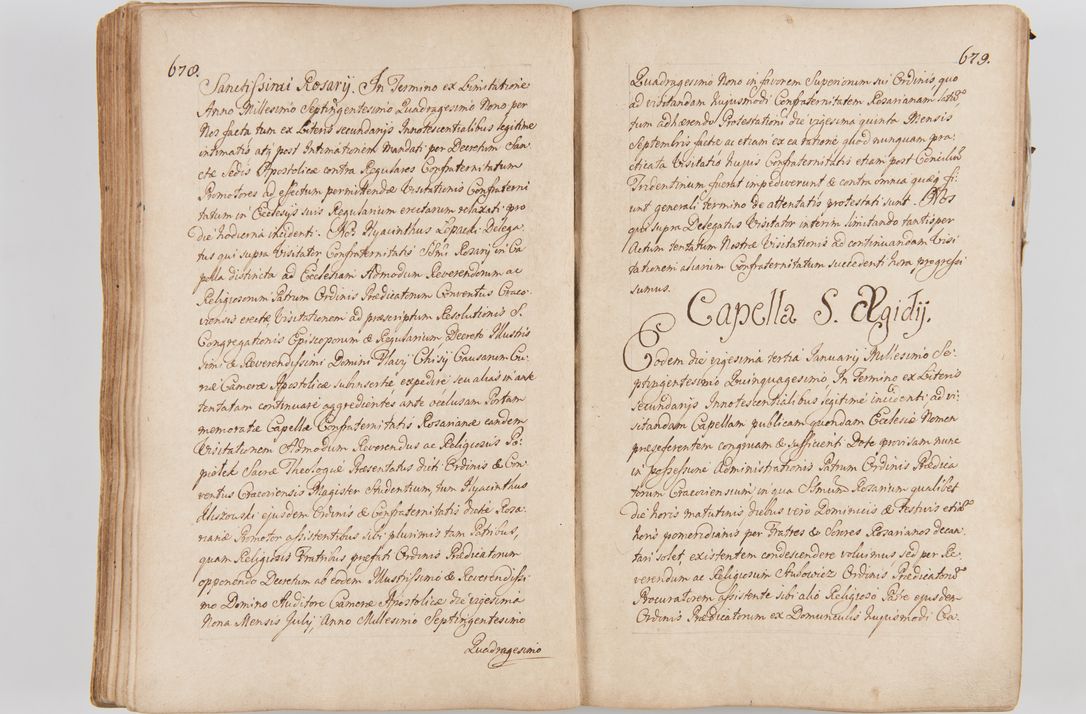 678.
Sanctissimi Rosarij. In Termino ex Limitatione
Anno Millesimo Septingentesimo Quadragesimo Nono per
Nos facta tum ex Literis secundarijs Innotescentialibus legitime
intimatis atq post Intimationem Mandati per Decretum San-
ctæ Sedis Apostolicæ contra Regulares Confraternitatum
Promotores ad effectum permittendæ Visitationis Confraterni
tatum in Ecclesijs suis Regularium erectarum relaxati pro
die hodierna incidenti. Nos Hyacinthus Łopacki Delega-
tus qui supra Visitator Confraternitatis SSmi Rosarij in Ca-
pella distincta ad Ecclesiam Admodum Reverendorum ac
Religiosorum Patrum Ordinis Prædicatorum Conventus Craco-
viensis erectæ Visitationem ad præscriptum Resolutionis S.
Congregationis Episcoporum & Regularium Decreto Illustris
simi & Reverendissimi Domini Flavij Chisij Causarum Cu-
riæ Cameræ Apostolicæ subinsertæ expedire seu alias in ante
tentatam continuare aggredientes ante occlusam Portam
memoratæ Capellæ Confraternitatis Rosarianæ eandem
Visitationem Admodum Reverendus ac Religiosus Po-
piołek Sacræ Theologiæ Præsentatus dicti Ordinis & Con-
ventus Cracoviensis Magister Studentium, tum Hyacinthus
Aliszowski ejusdem Ordinis & Confraternitatis dictæ Rosa-
rianæ Promotor assistentibus sibi plurimis tam Patribus,
quam Religiosis Fratribus præfati Ordinis Prædicatorum
opponendo Decretum ab eodem Illustrissimo & Reverendissi-
mo Domino Auditore Cameræ Apostolicæ die vigesima
Nona Mensis Julij, Anno Millesimo Septingentesimo
Quadragesimo
679.
Quadragesimo Nono in favorem Superiorum sui Ordinis quo
ad visitandam hujusmodi Confraternitatem Rosarianam
tum adhærendo Protestationi die vigesima quinta Mensis
Septembris factæ ac etiam ex ea ratione quod nunquam pra-
cticata Visitatio hujus Confraternitatis etiam post Concilium
Tridentinum fuerat impediverunt & contra omnia quæq fi-
unt generali termino de attentatis protestati sunt. Nos
qui supra Delegatus Visitator interim limitando tantisper
Actum tentatum Nostræ Visitationis ad continuandam Visi
tationem aliarum Confraternitatum succedenti hora progressi
sumus.
Capella S. Ægidij.
Eodem die vigesima tertia Januarij Millesimo Se-
ptingentesimo Quinquagesimo, In Termino ex Literis
secundarijs Innotescentialibus legitime incidenti, ad vi-
sitandam Capellam publicam quondam Ecclesiæ Nomen
præseferentem congruam & sufficienti Dote provisam nunc
in possessione Administrationis Patrum Ordinis Prædica
torum Cracoviensium, in qua SSmum Rosarium qualibet
die horis matutinis diebus vero Dominicis & Festivis etia
horis pomeridianis per Fratres & Sorores Rosarianos decan-
tari solet, existentem condescendere voluimus sed per Re-
verendum ac Religiosum Ordinis Prædicatorũ
Procuratorem assistente sibi alio Religioso Patre ejusdem
Ordinis Prædicatorum ex Domunculis hujusmodi Ca-